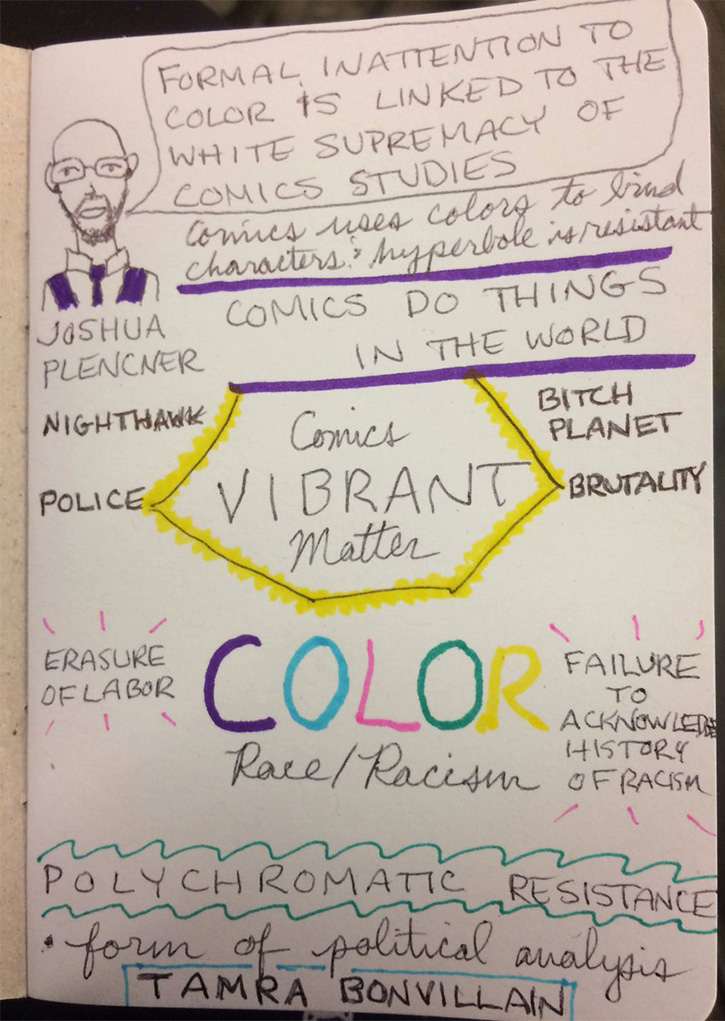 FORMAL INATTENTION TO
COLOR IS LINKED TO THE
WHITE SUPREMACY OF
COMICS STUDIES
Comics uses colors to bind
characters: hyperbole is resistant
JOSHUA
PLENCNER
COMICS DO THINGS
IN THE WORLD
NIGHTHAWK
POLICE
Comics
VIBRANT
Matter
BITCH
PLANET
BRUTALITY
ERASURE
OF LABOR
COLOR
Race/Racism
FAILURE
TO
ACKNOWLEDGE
HISTORY
OF RACISM
POLYCHROMATIC RESISTANCE
• form of political analysis
TAMRA BONVILLAIN